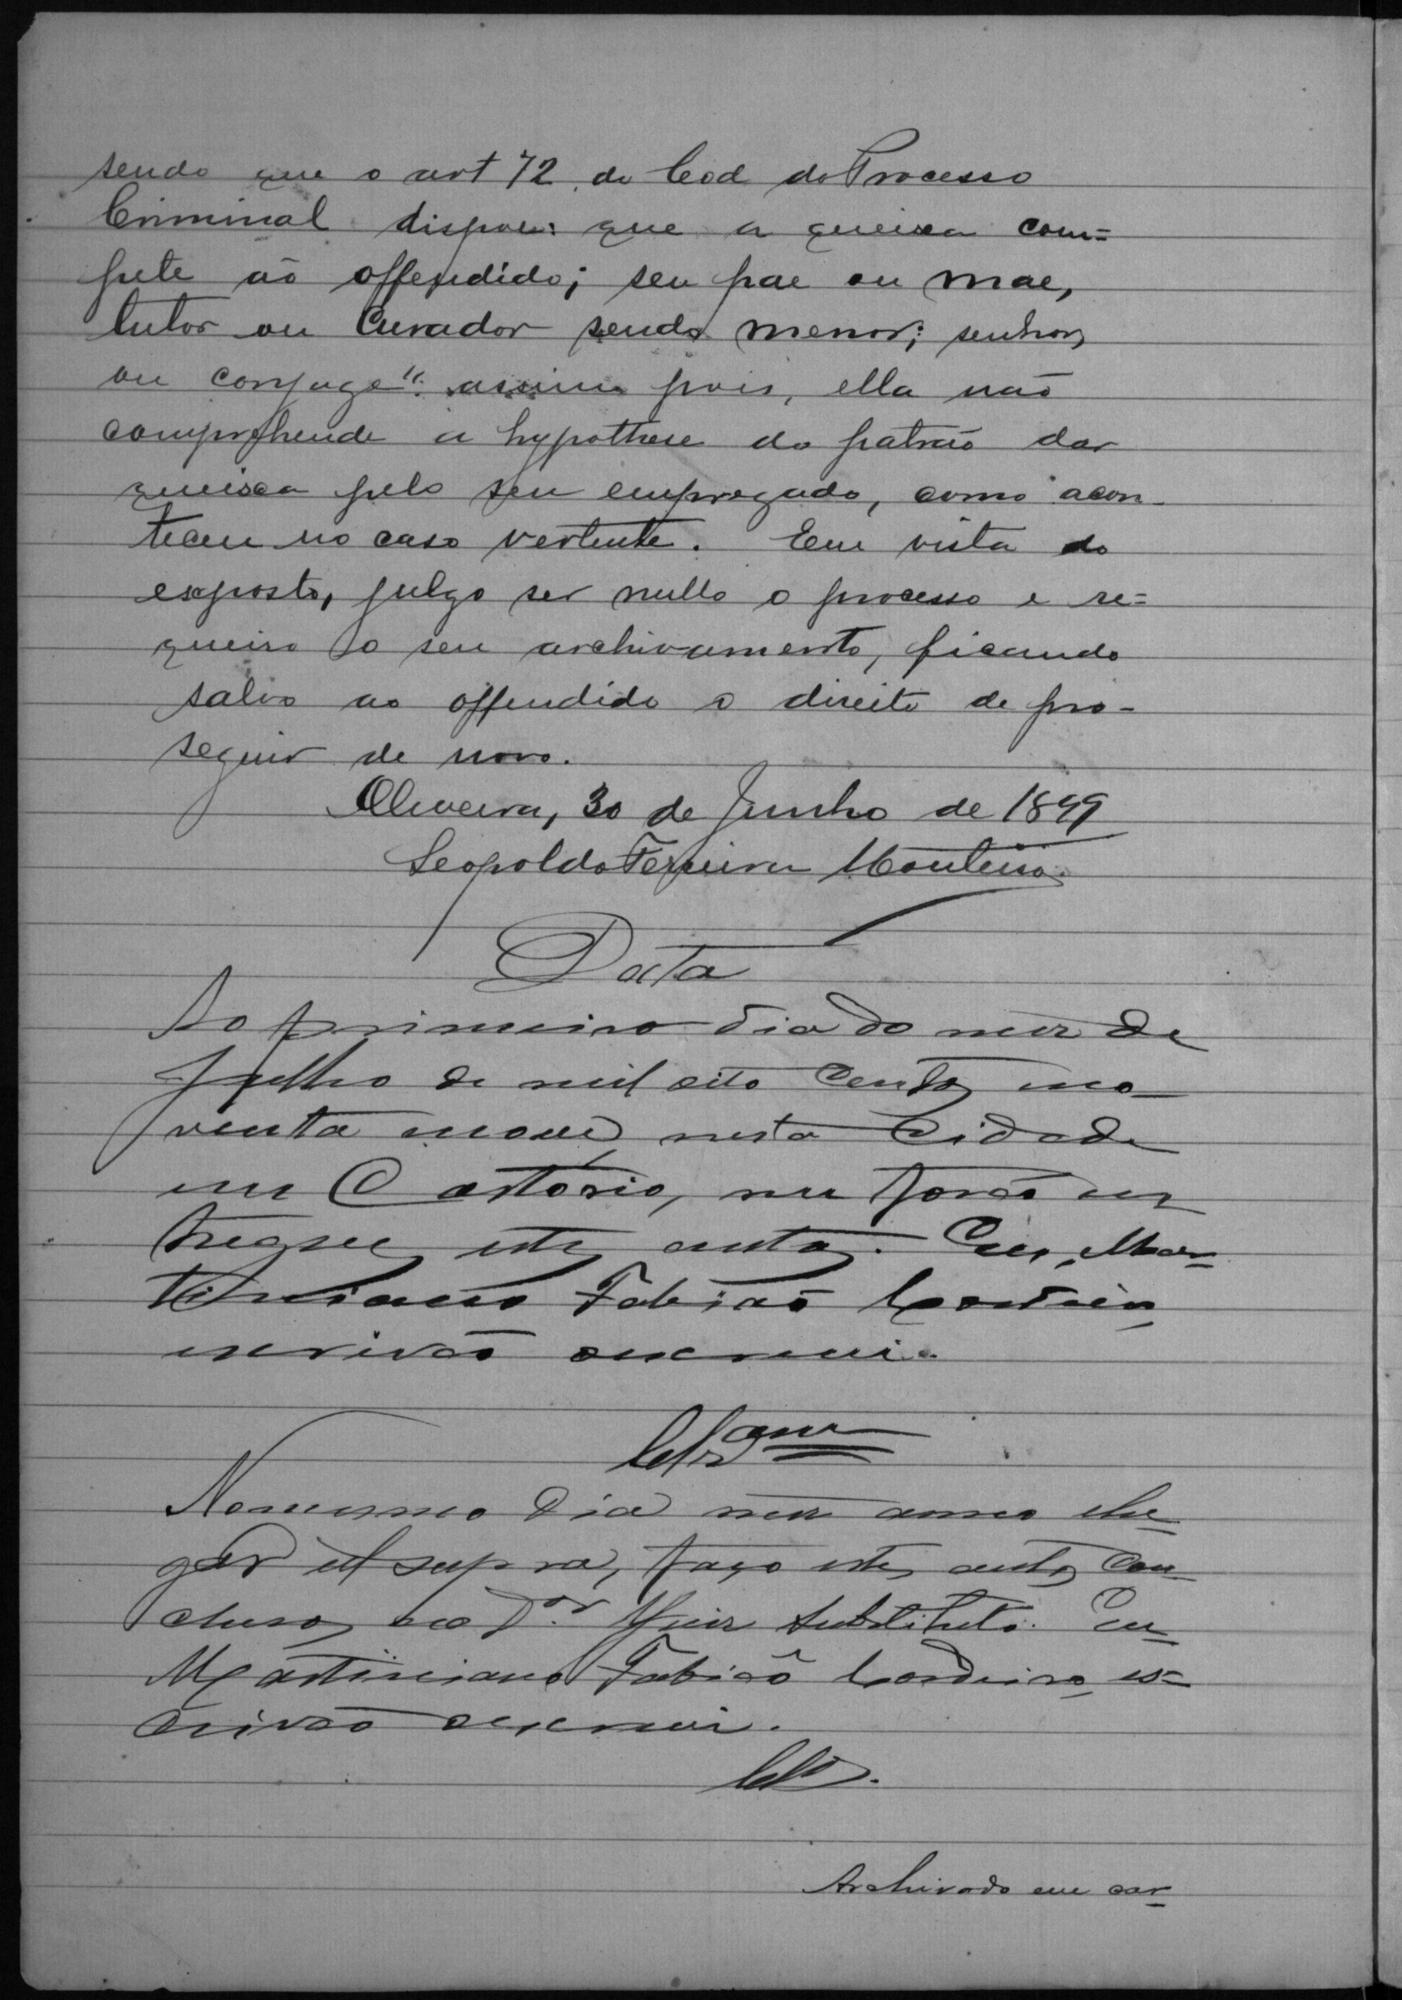 sendo que o art 72 do Cod do Processo
Criminal dispoe: que a queixa com=
pete ao offendido; seu pae ou mae,
tutor ou Curador sendo menor; senhor,
ou conjuge". assim pois, ella não
comprehende a hypothese do patrão dar
queixa pelo seu empregado, como acon-
teceu no caso vertente. Em vista do
exposto, julgo ser nullo o processo e re=
queiro o seu archivamento, ficando
salvo ao offendido o direito de pro-
seguir de novo.
Oliveira, 30 de Junho de 1899
Leopoldo Ferreira Monteiro.
Data
Ao primeiro dia do mez de
Julho de mil oito centos no-
venta nove nesta Cidade
em Cartorio, me forão en
tregues estes autos. Eu, Mar-
tiniano Fabião Cordeiro,
escrivão escrevi.
Clsam
No mesmo dia mez anno lu-
gar ut supra, faço estes autos con-
clusos ao Dor. Juiz Substituto. Eu
Martiniano Fabião Cordeiro, es=
crivão escrevi.
Cls.
Archivado em car-